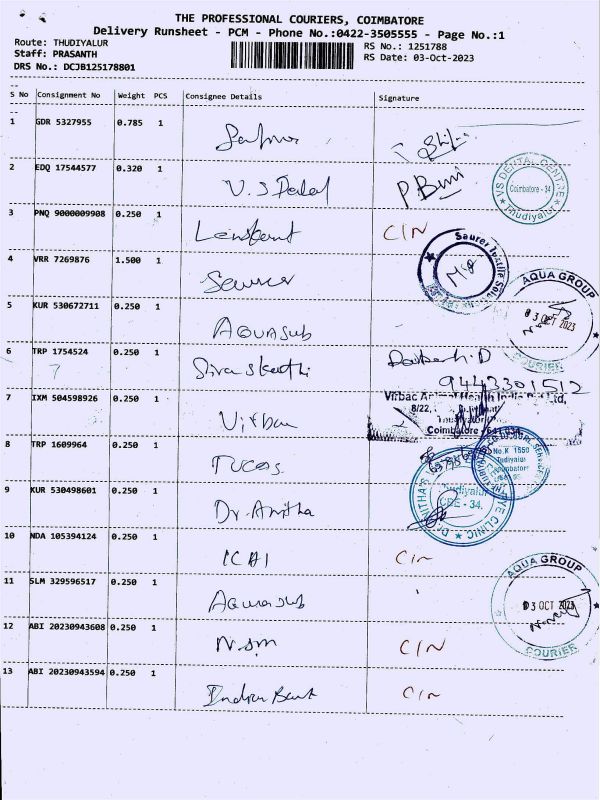 THE PROFESSIONAL COURIERS, COIMBATORE
Delivery Runsheet - PCM - Phone No.:0422-3505555 - Page No.:1
Route: THUDIYALUR
RS No.: 1251788
Staff: PRASANTH
RS Date: 03-Oct-2023
DRS No.: DCJB125178801
S No Consignment No Weight PCS Consignee Details Signature
1 GDR 5327955 0.785 1
2 EDQ 17544577 0.320 1 V.S Dental
VS DENTAL CENTRE
Coimbatore - 34
Thudiyalur
3 PNQ 9000009908 0.250 1 Lenskart C/N
4 VRR 7269876 1.500 1 Saurer
Saurer Textile Solu
5 KUR 530672711 0.250 1 Aquasub
AQUA GROUP
03 OCT 2023
COURIER
6 TRP 1754524 0.250 1
7
9443301512
7 IXM 504598926 0.250 1 Virbac
Virbac Animal Health India Pvt Ltd,
8/22,
Coimbatore - 641 034
8 TRP 1609964 0.250 1 TUCOS
No.K 1550
Tudiyalur
9 KUR 530498601 0.250 1 Dr. Anitha
EYE CLINIC
Tudiyalur
CBE - 34.
10 NDA 105394124 0.250 1 ICAI C/N
11 SLM 329596517 0.250 1 Aquasub
AQUA GROUP
03 OCT 2023
COURIER
12 ABI 20230943608 0.250 1 NSM C/N
13 ABI 20230943594 0.250 1 Indian Bank C/N